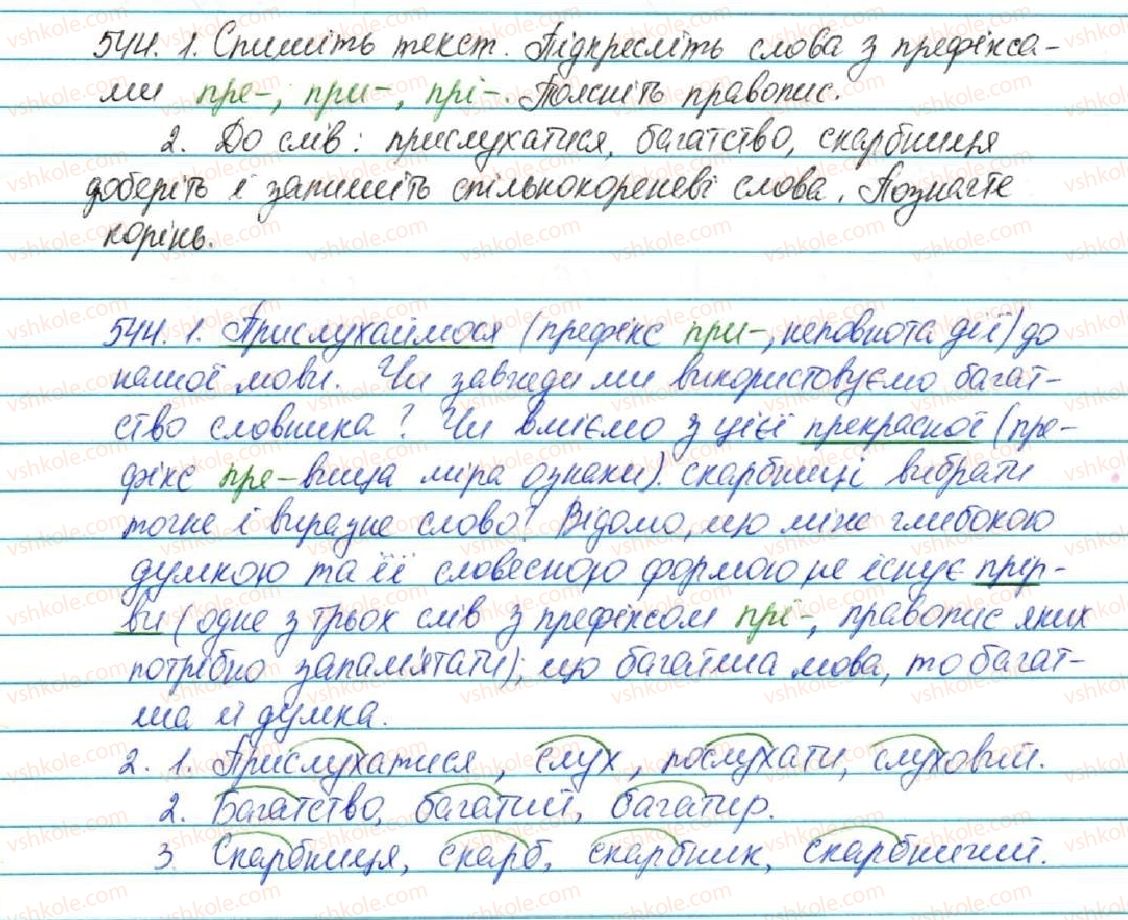 544. 1. Спишіть текст. Підкресліть слова з префікса-
ми пре-, при-, прі-. Поясніть правопис.
2. До слів: прислухатися, багатство, скарбниця
доберіть і запишіть спільнокореневі слова. Позначте
корінь.
544. 1. Прислухаймося (префікс при-, неповнота дії) до
нашої мови. Чи завжди ми використовуємо багат-
ство словника? Чи вміємо з цієї прекрасної (пре-
фікс пре- вища міра ознаки). скарбниці вибрати
точне і виразне слово? Відомо, що між глибокою
думкою та її словесною формою не існує прір-
ви (одне з трьох слів з префіксом прі-, правопис яких
потрібно запам'ятати); що багатша мова, то багат-
ша й думка.
2. 1. Прислухатися, слух, послухати, слуховий.
2. Багатство, багатий, багатир.
3. Скарбниця, скарб, скарбник, скарбничий.